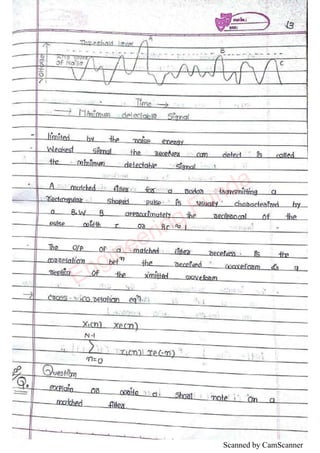 19
Threshold level
A
B
C
RMS value
of Noise
Voltage
Time →
→ Minimum detectable Signal
- limited by the noise energy
- Weakest signal the receiver can detect is called
the minimum detectable signal
- A matched filter for a radar transmitting a
rectangular shaped pulse is usually characterized by
a B.W B approximately the reciprocal of the
pulse width τ or Bτ ≈ 1
- The O/P of a matched filter receiver is the
correlation betn the received waveform & a
replica of the xmitted waveform
→ cross-correlation eqn
x1(n) x2(n)
N-1
∑ x1(n) x2(-n)
n=0
Question
Q. explain or write a short note on a
matched filter
Engineering Funda
Scanned by CamScanner